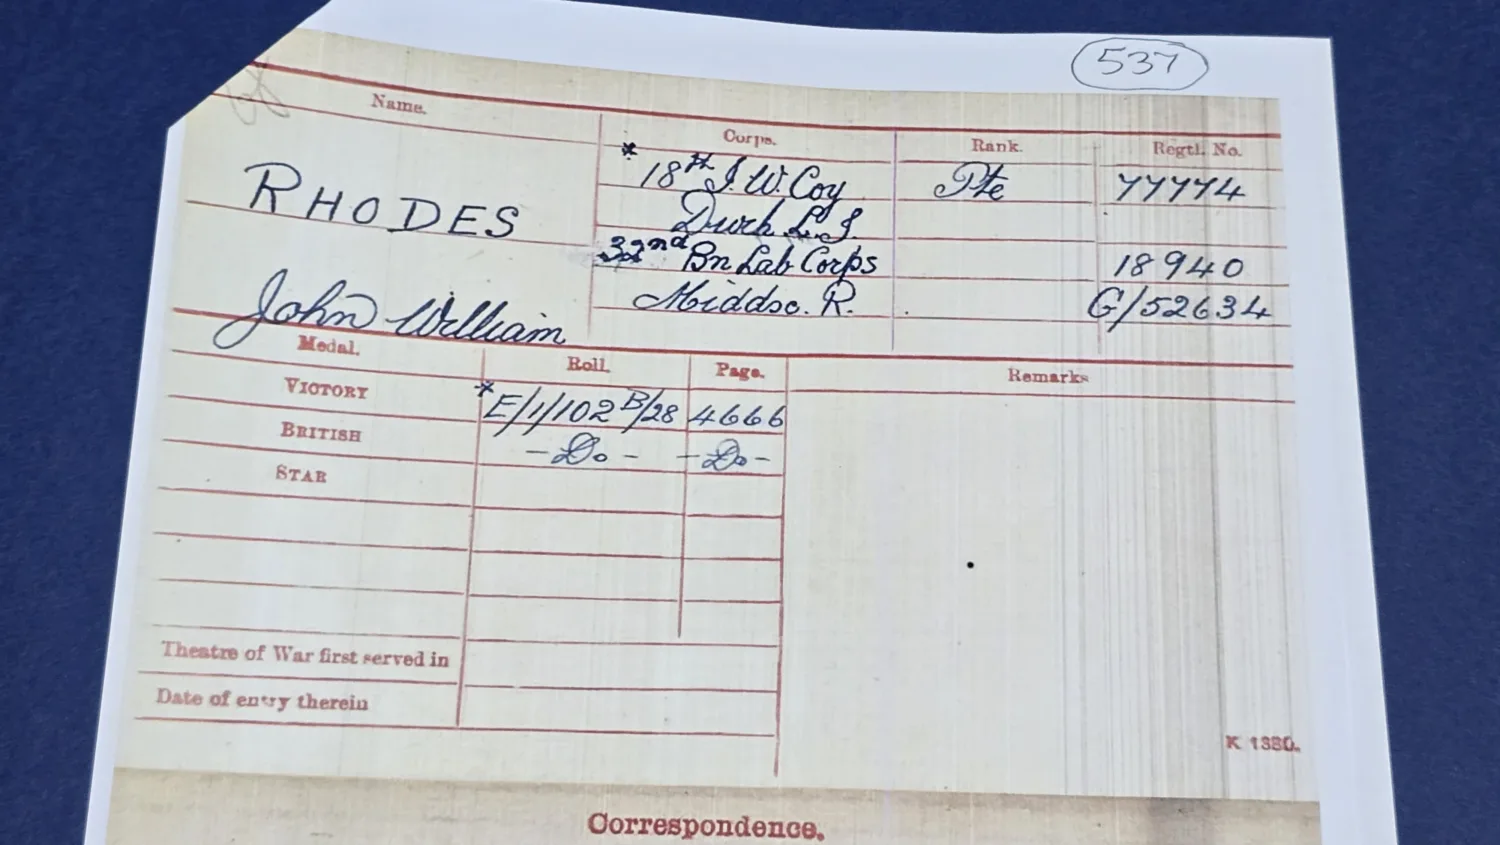 537
Name. Corps. Rank. Regtl. No.
* 18th I.W. Coy Pte 77774
RHODES Durh L.I.
32nd Bn Lab Corps 18940
John William Middsx. R. G/52634
Medal. Roll. Page. Remarks
VICTORY * E/1/102 B/28 4666
BRITISH -Do- -Do-
STAR
Theatre of War first served in
Date of entry therein
K 1380.
Correspondence.